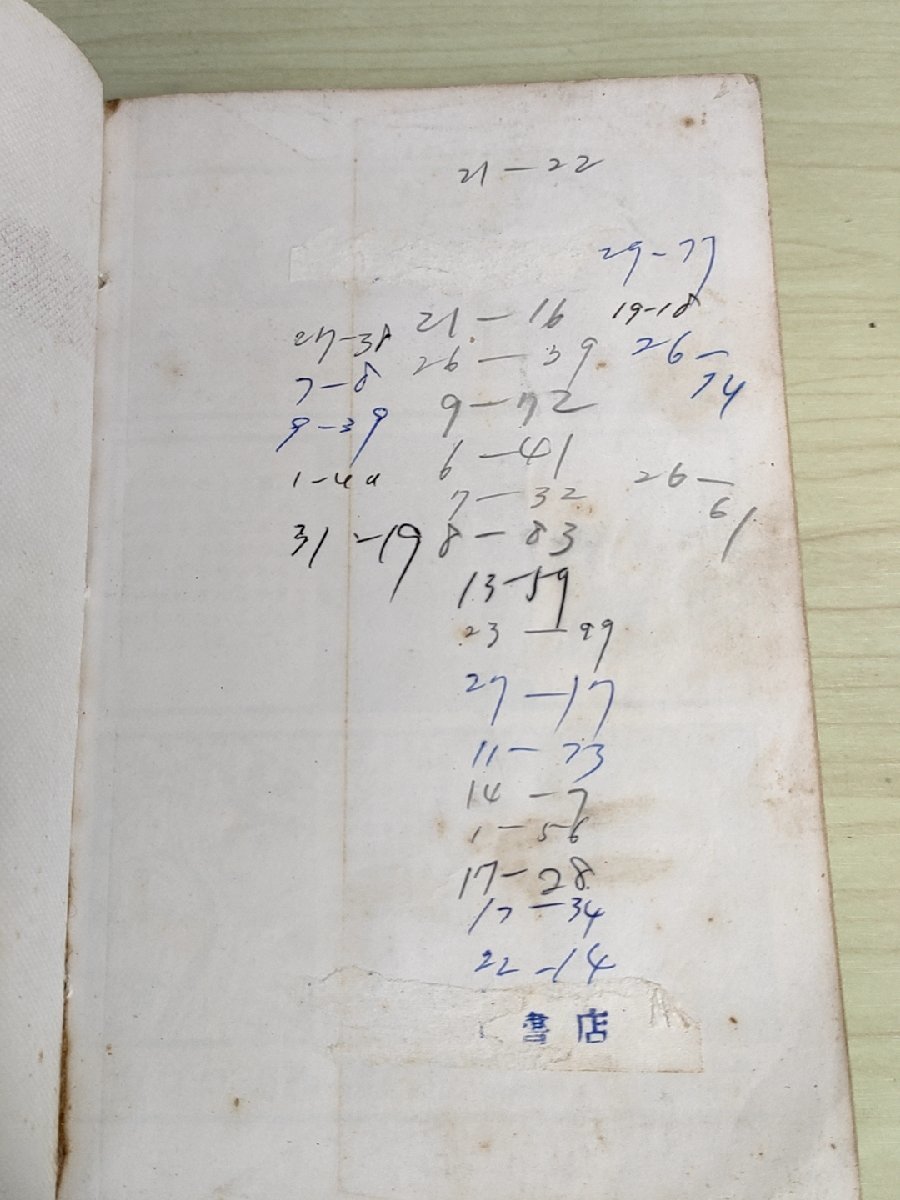 21-22
29-77
19-18
26-
74
26-
61
21-16
26-39
9-72
6-41
7-32
8-83
13-59
23-99
27-17
11-73
14-7
1-56
17-28
17-34
22-14
27-38
7-8
9-39
31-19
書店